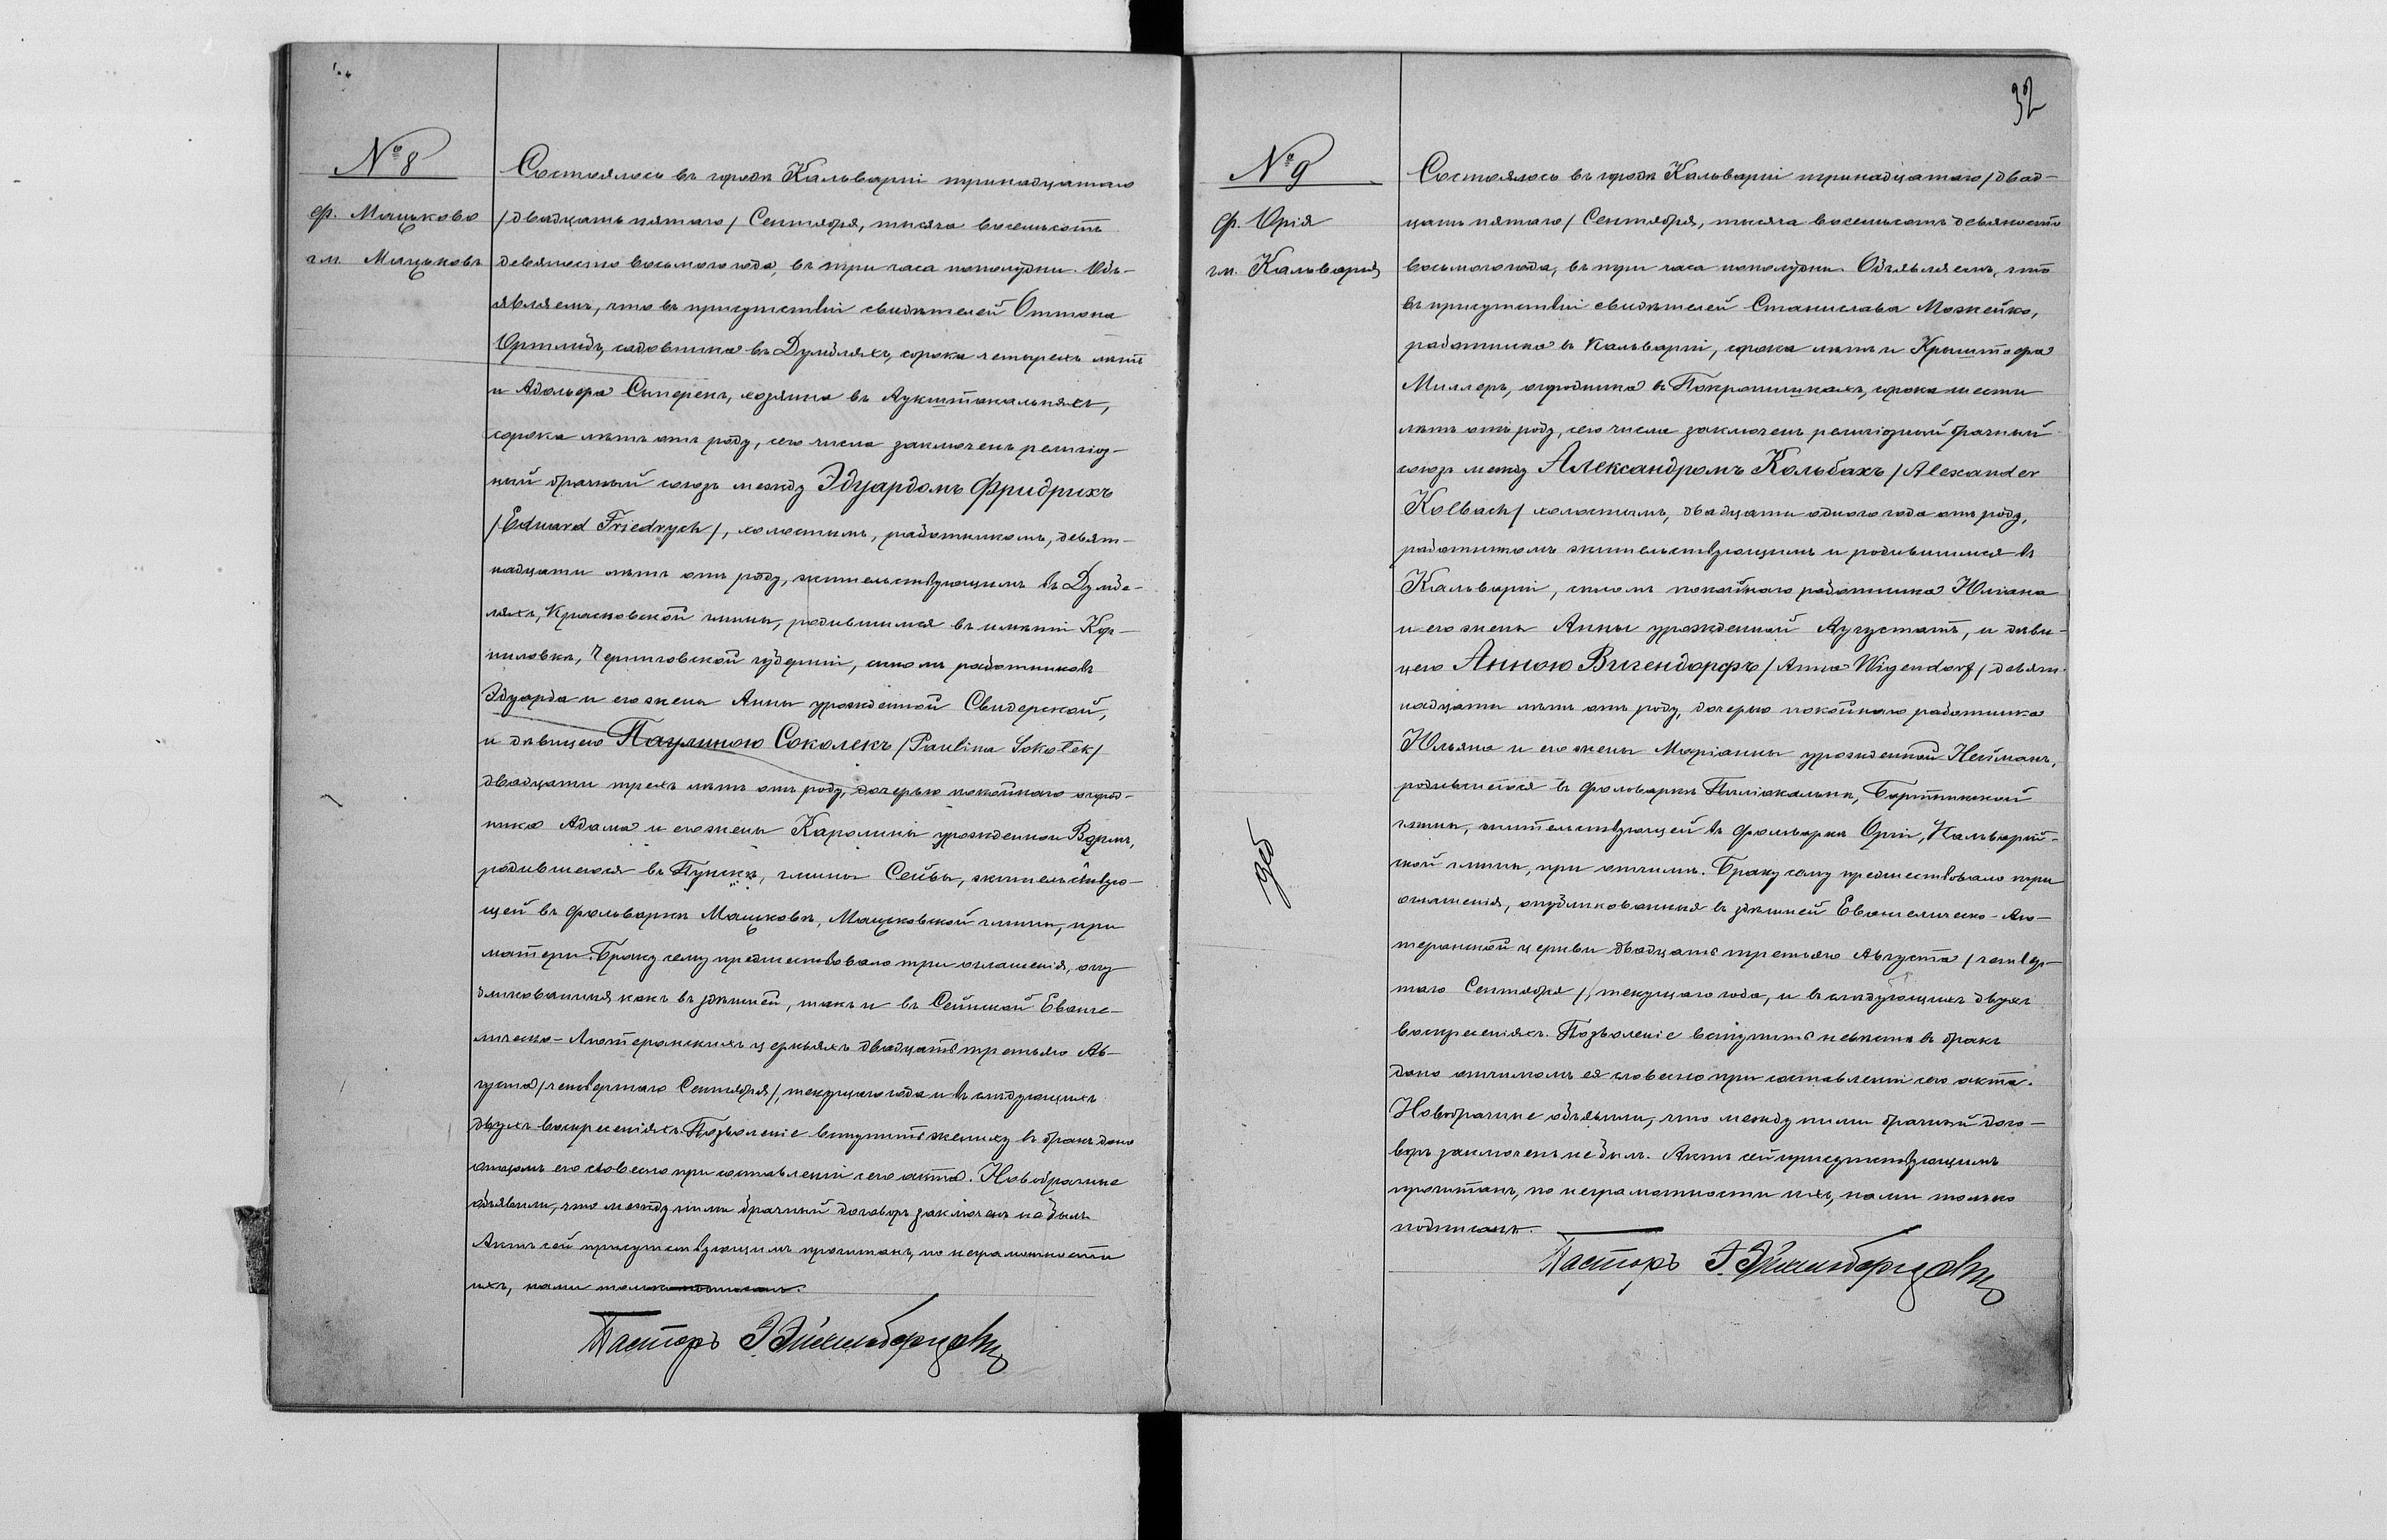 № 8
ф. Мацьково
гм. Мацьковъ
Состоялось въ городѣ Кальваріи тринадцатаго
/двадцать пятаго/ Сентября, тысяча восемьсотъ
девяносто восьмого года, въ три часа пополудни. Объ-
являемъ, что въ присутствіи свидѣтелей Оттона
садовника въ Думбляхъ, сорока четырехъ лѣтъ
и Адольфа хозяина въ Аукштокальняхъ,
сорока лѣтъ отъ роду, сего числа заключенъ религіоз-
ный брачный союзъ между Эдуардомъ Фридрихъ
/Eduard Friedrych/, холостымъ, работникомъ, девят-
надцати лѣтъ отъ роду, жительствующимъ въ Думб-
ляхъ, Красновской гмины, родившимся въ имѣніи Кор-
ниловкѣ, Черниговской губерніи, сыномъ работниковъ
Эдуарда и его жены Анны урожденной Свидерской,
и дѣвицею Паулиною Соколекъ /Paulina Sokołek/
двадцати трехъ лѣтъ отъ роду, дочерью покойнаго огород-
ника Адама и его жены Каролины урожденной
родившеюся въ Пунскѣ, гмины Сейвы, жительствую-
щей въ фольваркѣ Мацьковѣ, Мацьковской гмины, при
матери. Браку сему предшествовало три оглашенія, опу-
бликованныя какъ въ здѣшней, такъ и въ Сейнской Еванге-
лическо-Лютеранскихъ церквяхъ двадцать третьяго Ав-
густа /четвертаго Сентября/, текущаго года и въ слѣдующихъ
двухъ воскресеніяхъ. Позволеніе вступить жениху въ бракъ дано
отцомъ его словесно при составленіи сего акта. Новобрачные
объявили, что между ними брачный договоръ заключенъ не былъ.
Актъ сей присутствующимъ прочитанъ, по неграмотности
ихъ, нами только подписанъ.
Пасторъ
32
№ 9
ф. Орія
гм. Кальварія
Состоялось въ городѣ Кальваріи тринадцатаго /двад-
цать пятаго/ Сентября, тысяча восемьсотъ девяносто
восьмого года, въ три часа пополудни. Объявляемъ, что
въ присутствіи свидѣтелей Станислава Можейко,
работника въ Кальваріи, сорока лѣтъ и Крыштофа
Миллеръ, огородника въ Покропишкахъ, сорока шести
лѣтъ отъ роду, сего числа заключенъ религіозный брачный
союзъ между Александромъ Кольбахъ /Alexander
Kolbach/ холостымъ, двадцати одного года отъ роду,
работникомъ жительствующимъ и родившимся въ
Кальваріи, сыномъ покойнаго работника Юліана
и его жены Анны урожденной Аугустатъ, и дѣви-
цею Анною Вигендорфъ /Anna Wigendorf/ девят-
надцати лѣтъ отъ роду, дочерью покойнаго работника
Юльяна и его жены Маріанны урожденной Нейманъ,
родившеюся въ фольваркѣ Пиліокальни, Бартникской
гмины, жительствующей въ фольваркѣ Оріи, Кальварій-
ской гмины, при отчимѣ. Браку сему предшествовало три
оглашенія, опубликованныя въ здѣшней Евангелическо-Лю-
теранской церкви двадцать третьяго Августа /четвер-
таго Сентября/, текущаго года, и въ слѣдующихъ двухъ
воскресеніяхъ. Позволеніе вступить невѣстѣ въ бракъ
дано отчимомъ ея словесно при составленіи сего акта.
Новобрачные объявили, что между ними брачный дого-
воръ заключенъ не былъ. Актъ сей присутствующимъ
прочитанъ, по неграмотности ихъ, нами только
подписанъ.
Пасторъ